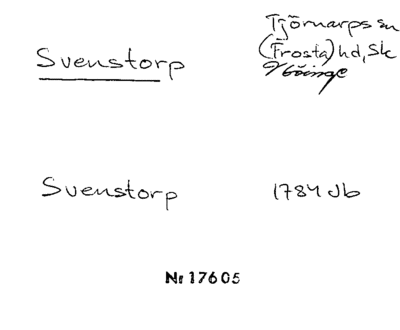 Svenstorp
Tjörnarps sn
(Frosta) hd, Sk
Svenstorp 1784 Jb
Nr 17605